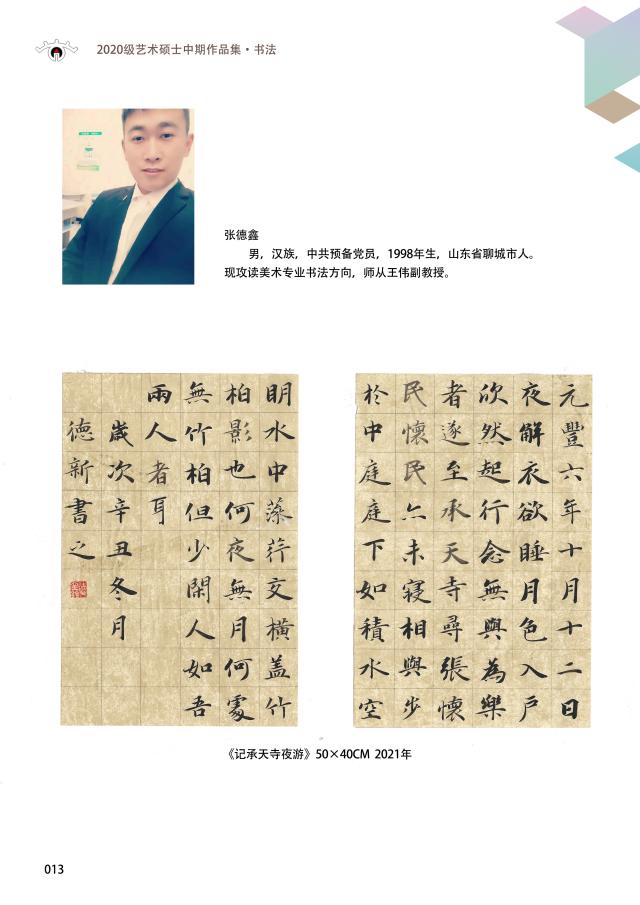 2020级艺术硕士中期作品集·书法
张德鑫
男，汉族，中共预备党员，1998年生，山东省聊城市人。
现攻读美术专业书法方向，师从王伟副教授。
元豐六年十月十二日
夜解衣欲睡月色入戶
欣然起行念無與為樂
者遂至承天寺尋張懷
民懷民亦未寢相與步
於中庭庭下如積水空
明水中藻荇交橫盖竹
柏影也何夜無月何處
無竹柏但少閑人如吾
兩人者耳
歲次辛丑冬月
德新書之
《记承天寺夜游》50×40CM 2021年
013